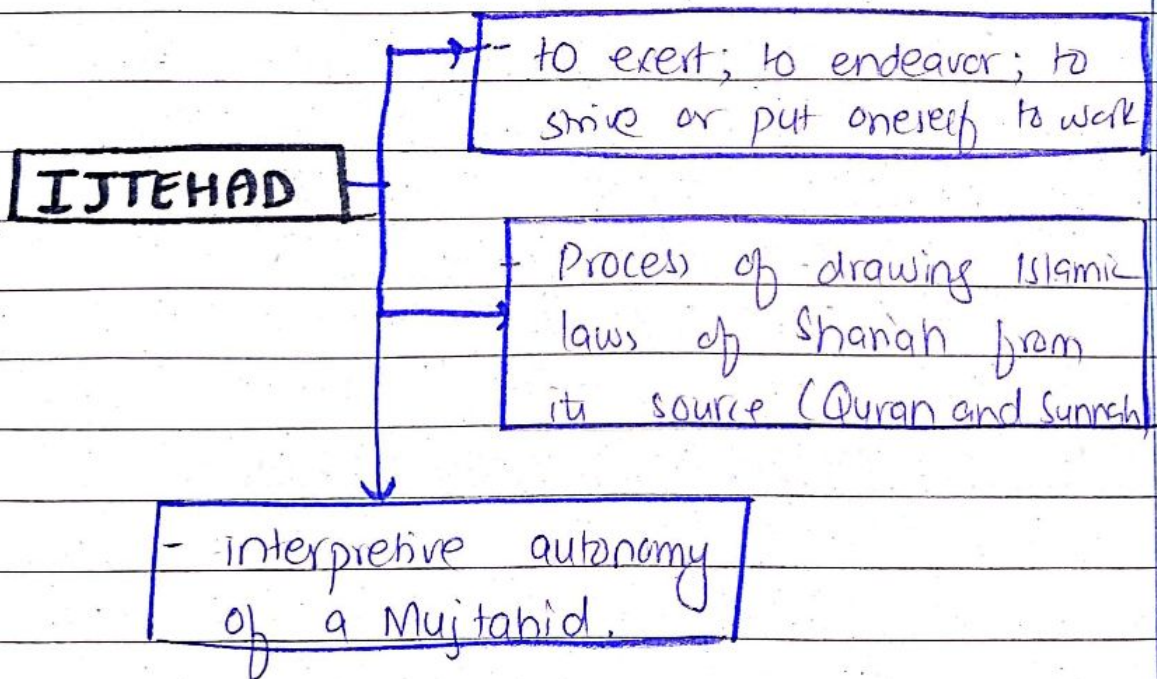 - to exert; to endeavor; to
strive or put oneself to work
IJTEHAD
- Process of drawing Islamic
laws of Shariah from
its source (Quran and Sunnah
- interpretive autonomy
of a Mujtahid.